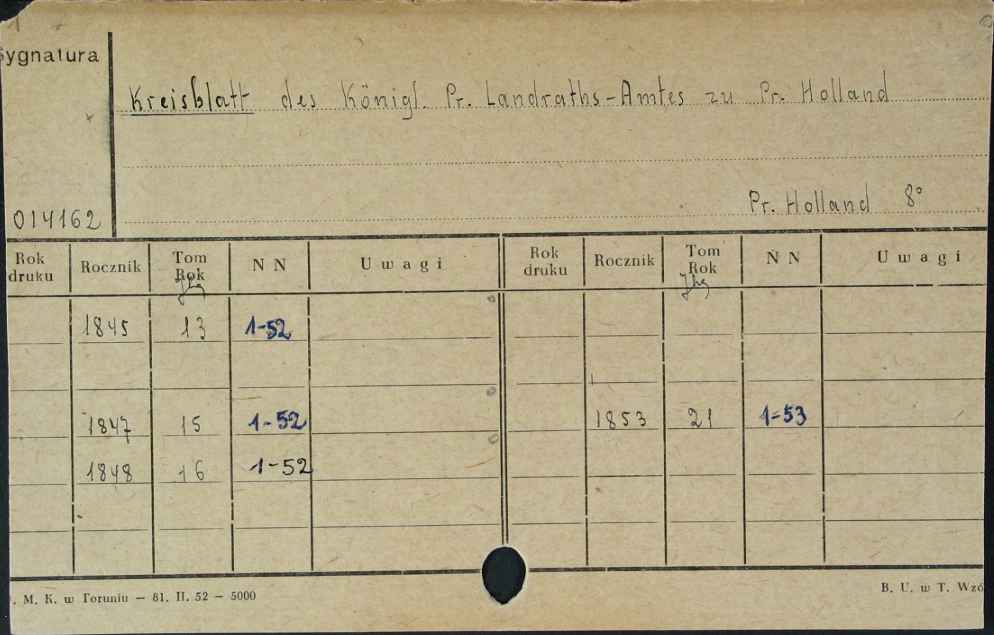 Sygnatura
Kreisblatt des Königl. Pr. Landraths-Amtes zu Pr. Holland
014162
Pr. Holland 8°
Rok druku Rocznik Tom Rok N N Uwagi Rok druku Rocznik Tom Rok N N Uwagi
Jhg Jhg
1845 13 1-52
1847 15 1-52 1853 21 1-53
1848 16 1-52
. M. K. w Toruniu — 81. II. 52 — 5000 B. U. w T. Wzó